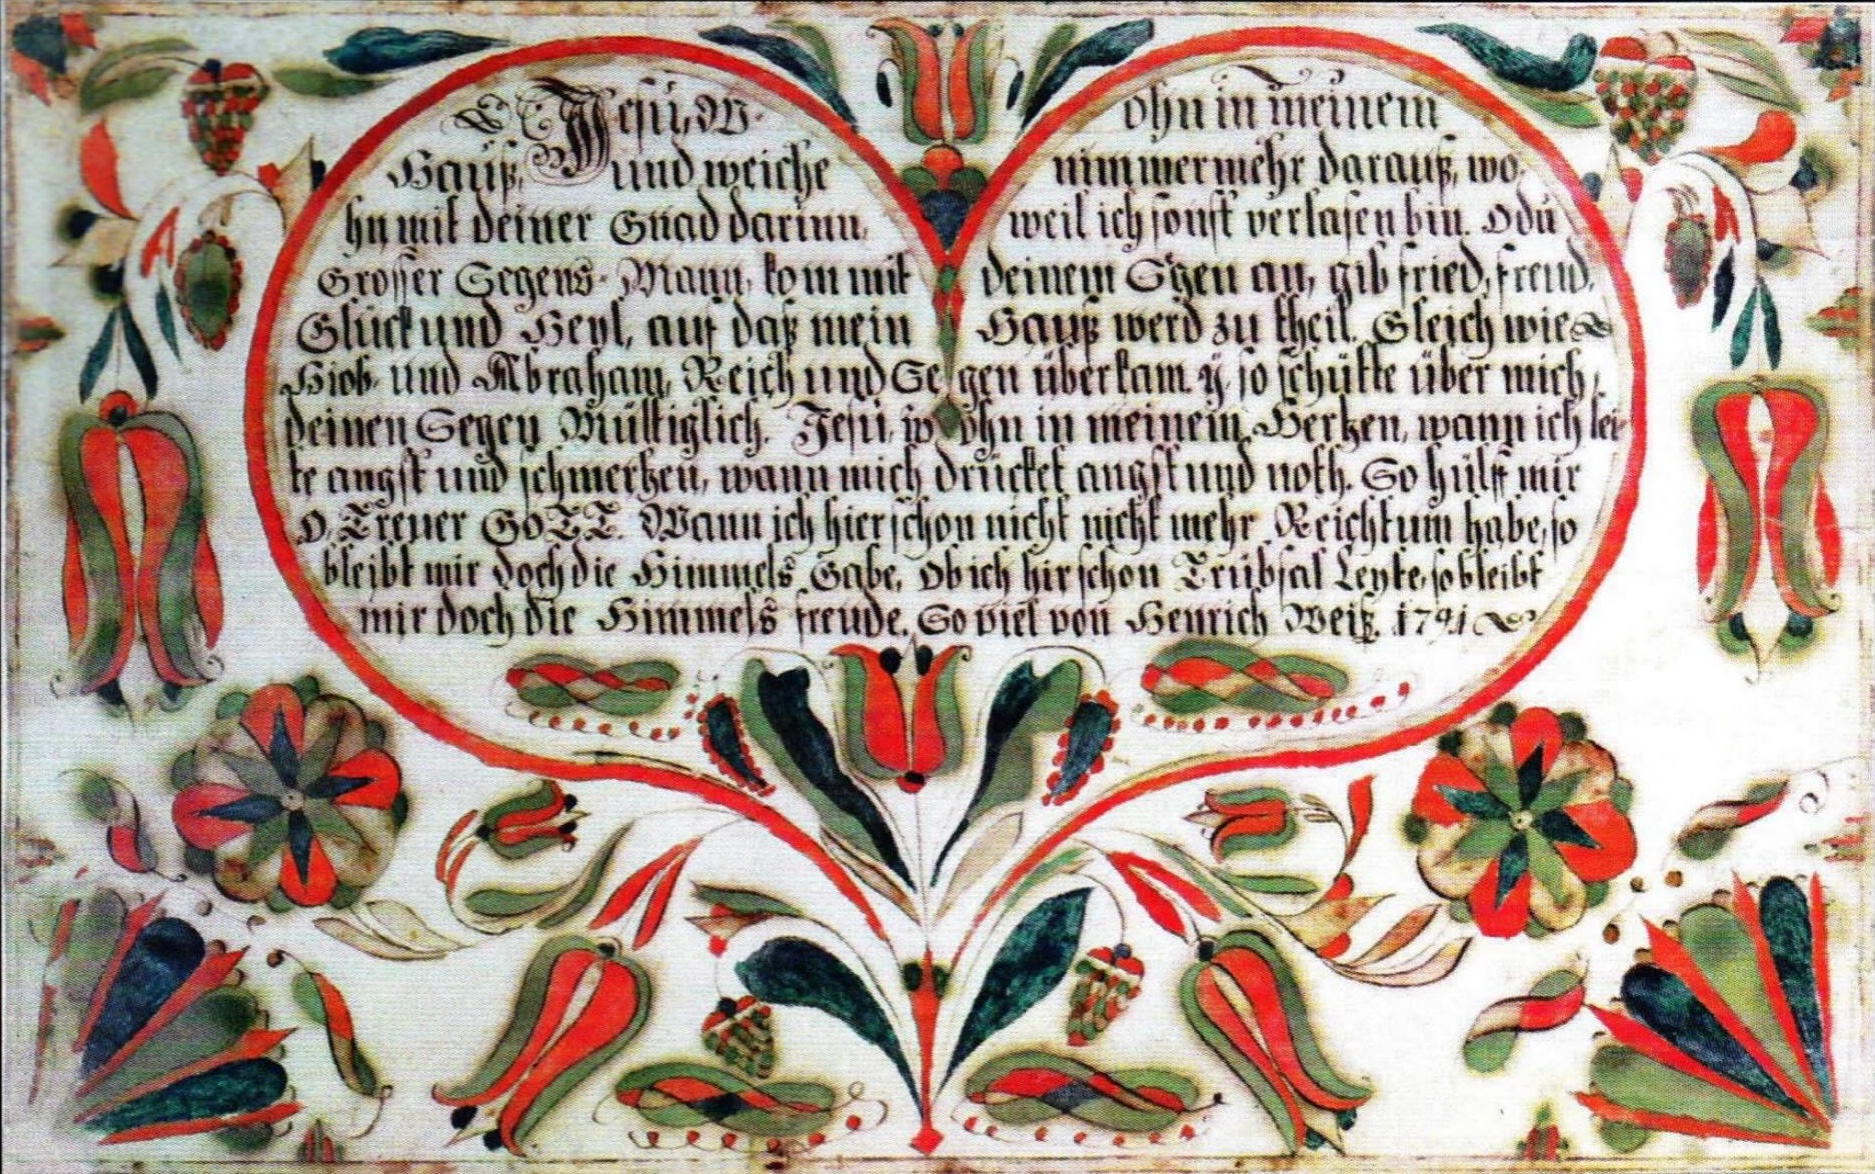 Jesu, W- ohn in meinem
Hauß, und weiche nimmermehr darauß, wo-
hn mit deiner Gnad darinn, weil ich sonst verlasen bin. O du
Grosser Segens-Mann, kom mit deinem Sgen an, gib fried, freud,
Glück und Heyl, auf daß mein Hauß werd zu theil. Gleich wie
Hiob und Abraham, Reich und Segen überkam. ÿ. so schütte über mich,
deinen Segen Mültiglich. Jesu, wohn in meinem Hertzen, wann ich lei-
te angst und schmertzen, wann mich drücket angst und noth. So hülff mir
O, Treuer GOTT. Wann ich hier schon nicht nicht mehr Reichtum habe, so
bleibt mir doch die Himmels Gabe, Ob ich hir schon Trübsal Leyte, so bleibt
mir doch die Himmels freude. So viel von Henrich Weiß. 1791